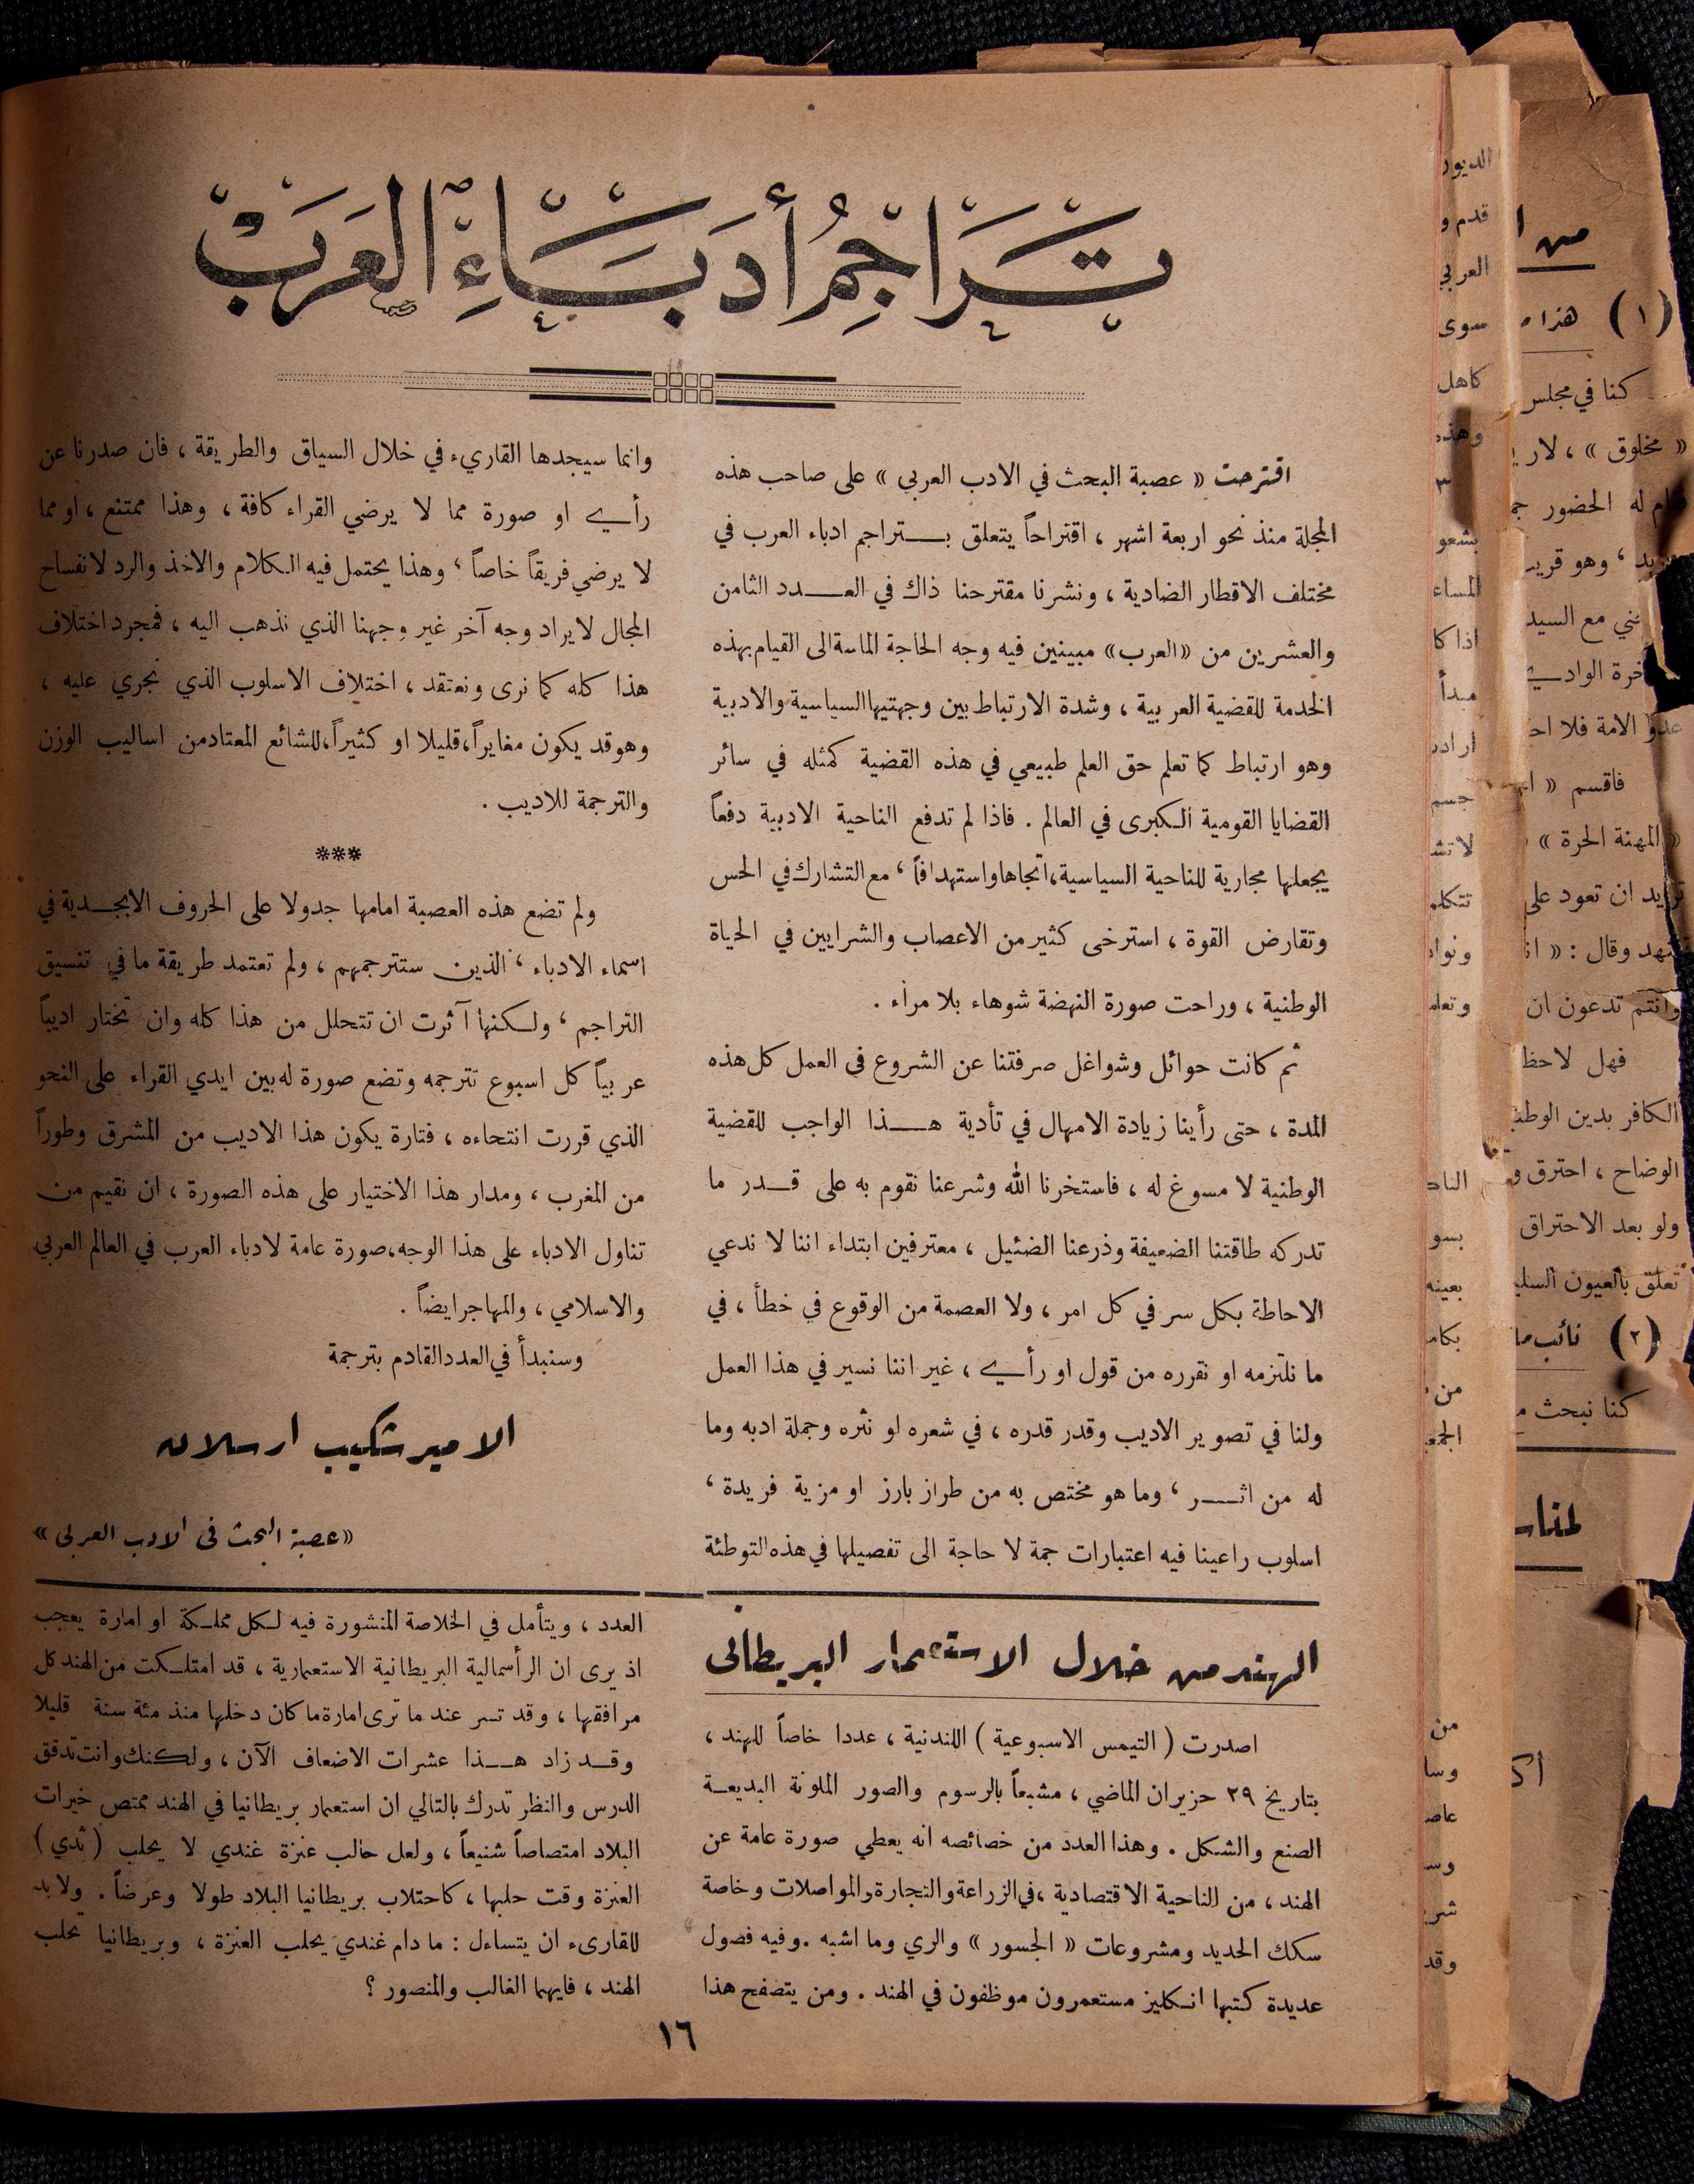 تَرَاجِمُ أُدَبَاءِ العَرَبْ
اقترحت « عصبة البحث في الادب العربي » على صاحب هذه
المجلة منذ نحو اربعة اشهر ، اقتراحاً يتعلق بتراجم ادباء العرب في
مختلف الاقطار الضادية ، ونشرنا مقترحنا ذاك في العدد الثامن
والعشرين من «العرب» مبينين فيه وجه الحاجة الماسة الى القيام بهذه
الخدمة للقضية العربية ، وشدة الارتباط بين وجهتيها السياسية والادبية
وهو ارتباط كما تعلم حق العلم طبيعي في هذه القضية كمثله في سائر
القضايا القومية الكبرى في العالم . فاذا لم تدفع الناحية الادبية دفعاً
يجعلها مجارية للناحية السياسية، اتجاها واستهدافاً ، مع التشارك في الحس
وتقارض القوة ، استرخى كثير من الاعصاب والشرايين في الحياة
الوطنية ، وراحت صورة النهضة شوهاء بلا مراء .
ثم كانت حوائل وشواغل صرفتنا عن الشروع في العمل كل هذه
المدة ، حتى رأينا زيادة الامهال في تأدية هذا الواجب للقضية
الوطنية لا مسوغ له ، فاستخرنا الله وشرعنا نقوم به على قدر ما
تدركه طاقتنا الضعيفة وذرعنا الضئيل ، معترفين ابتداء اننا لا ندعي
الاحاطة بكل سر في كل امر ، ولا العصمة من الوقوع في خطأ ، في
ما نلتزمه او نقرره من قول او رأي ، غير اننا نسير في هذا العمل
ولنا في تصوير الاديب وقدر قدره ، في شعره او نثره وجملة ادبه وما
له من اثر ، وما هو مختص به من طراز بارز او مزية فريدة ،
اسلوب راعينا فيه اعتبارات جمة لا حاجة الى تفصيلها في هذه التوطئة
وانما سيجدها القاريء في خلال السياق والطريقة ، فان صدرنا عن
رأي او صورة مما لا يرضي القراء كافة ، وهذا ممتنع ، او مما
لا يرضي فريقاً خاصاً ، وهذا يحتمل فيه الكلام والاخذ والرد لانفساح
المجال لايراد وجه آخر غير وجهنا الذي نذهب اليه ، فمجرد اختلاف
هذا كله كما نرى ونعتقد ، اختلاف الاسلوب الذي نجري عليه ،
وهو قد يكون مغايراً، قليلا او كثيراً، للشائع المعتاد من اساليب الوزن
والترجمة للاديب .
***
ولم تضع هذه العصبة امامها جدولا على الحروف الابجدية في
اسماء الادباء ، الذين ستترجمهم ، ولم تعتمد طريقة ما في تنسيق
التراجم ، ولكنها آثرت ان تتحلل من هذا كله وان تختار اديباً
عربياً كل اسبوع تترجمه وتضع صورة له بين ايدي القراء على النحو
الذي قررت انتحاءه ، فتارة يكون هذا الاديب من المشرق وطوراً
من المغرب ، ومدار هذا الاختيار على هذه الصورة ، ان نقيم من
تناول الادباء على هذا الوجه، صورة عامة لادباء العرب في العالم العربي
والاسلامي ، والمهاجر ايضاً .
وسنبدأ في العدد القادم بترجمة
الامير شكيب ارسلان
«عصبة البحث في الادب العربي»
الهند من خلال الاستعمار البريطاني
اصدرت ( التيمس الاسبوعية ) اللندنية ، عددا خاصاً للهند ،
بتاريخ ٢٩ حزيران الماضي ، مشبعاً بالرسوم والصور الملونة البديعة
الصنع والشكل . وهذا العدد من خصائصه انه يعطي صورة عامة عن
الهند ، من الناحية الاقتصادية ، في الزراعة والتجارة والمواصلات وخاصة
سكك الحديد ومشروعات « الجسور » والري وما اشبه . وفيه فصول
عديدة كتبها انكليز مستعمرون موظفون في الهند . ومن يتصفح هذا
العدد ، ويتأمل في الخلاصة المنشورة فيه لكل مملكة او امارة يعجب
اذ يرى ان الرأسمالية البريطانية الاستعمارية ، قد امتلكت من الهند كل
مرافقها ، وقد تسر عند ما ترى امارة ما كان دخلها منذ مئة سنة قليلا
وقد زاد هذا عشرات الاضعاف الآن ، ولكنك وانت تدقق
الدرس والنظر تدرك بالتالي ان استعمار بريطانيا في الهند ممتص خيرات
البلاد امتصاصاً شنيعاً ، ولعل حالب عنزة غندي لا يحلب ( ثدي )
العنزة وقت حلبها ، كاحتلاب بريطانيا البلاد طولا وعرضاً . ولا بد
للقارىء ان يتساءل : ما دام غندي يحلب العنزة ، وبريطانيا تحلب
الهند ، فايهما الغالب والمنصور ؟
١٦